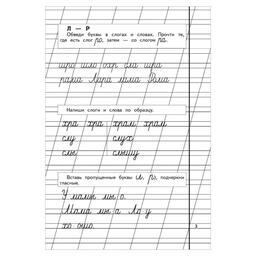 Л — Р
Обведи буквы в слогах и словах. Прочти те,
где есть слог ро, затем — со слогом ра.
рама Лара мама Рома
Напиши слоги и слова по образцу.
хра хра храм храм
слу слух
слы слышу
Вставь пропущенные буквы (л, р), подчеркни
гласные.
У мамы мы о.
Мама мы а Ла у
хо ошо.
3